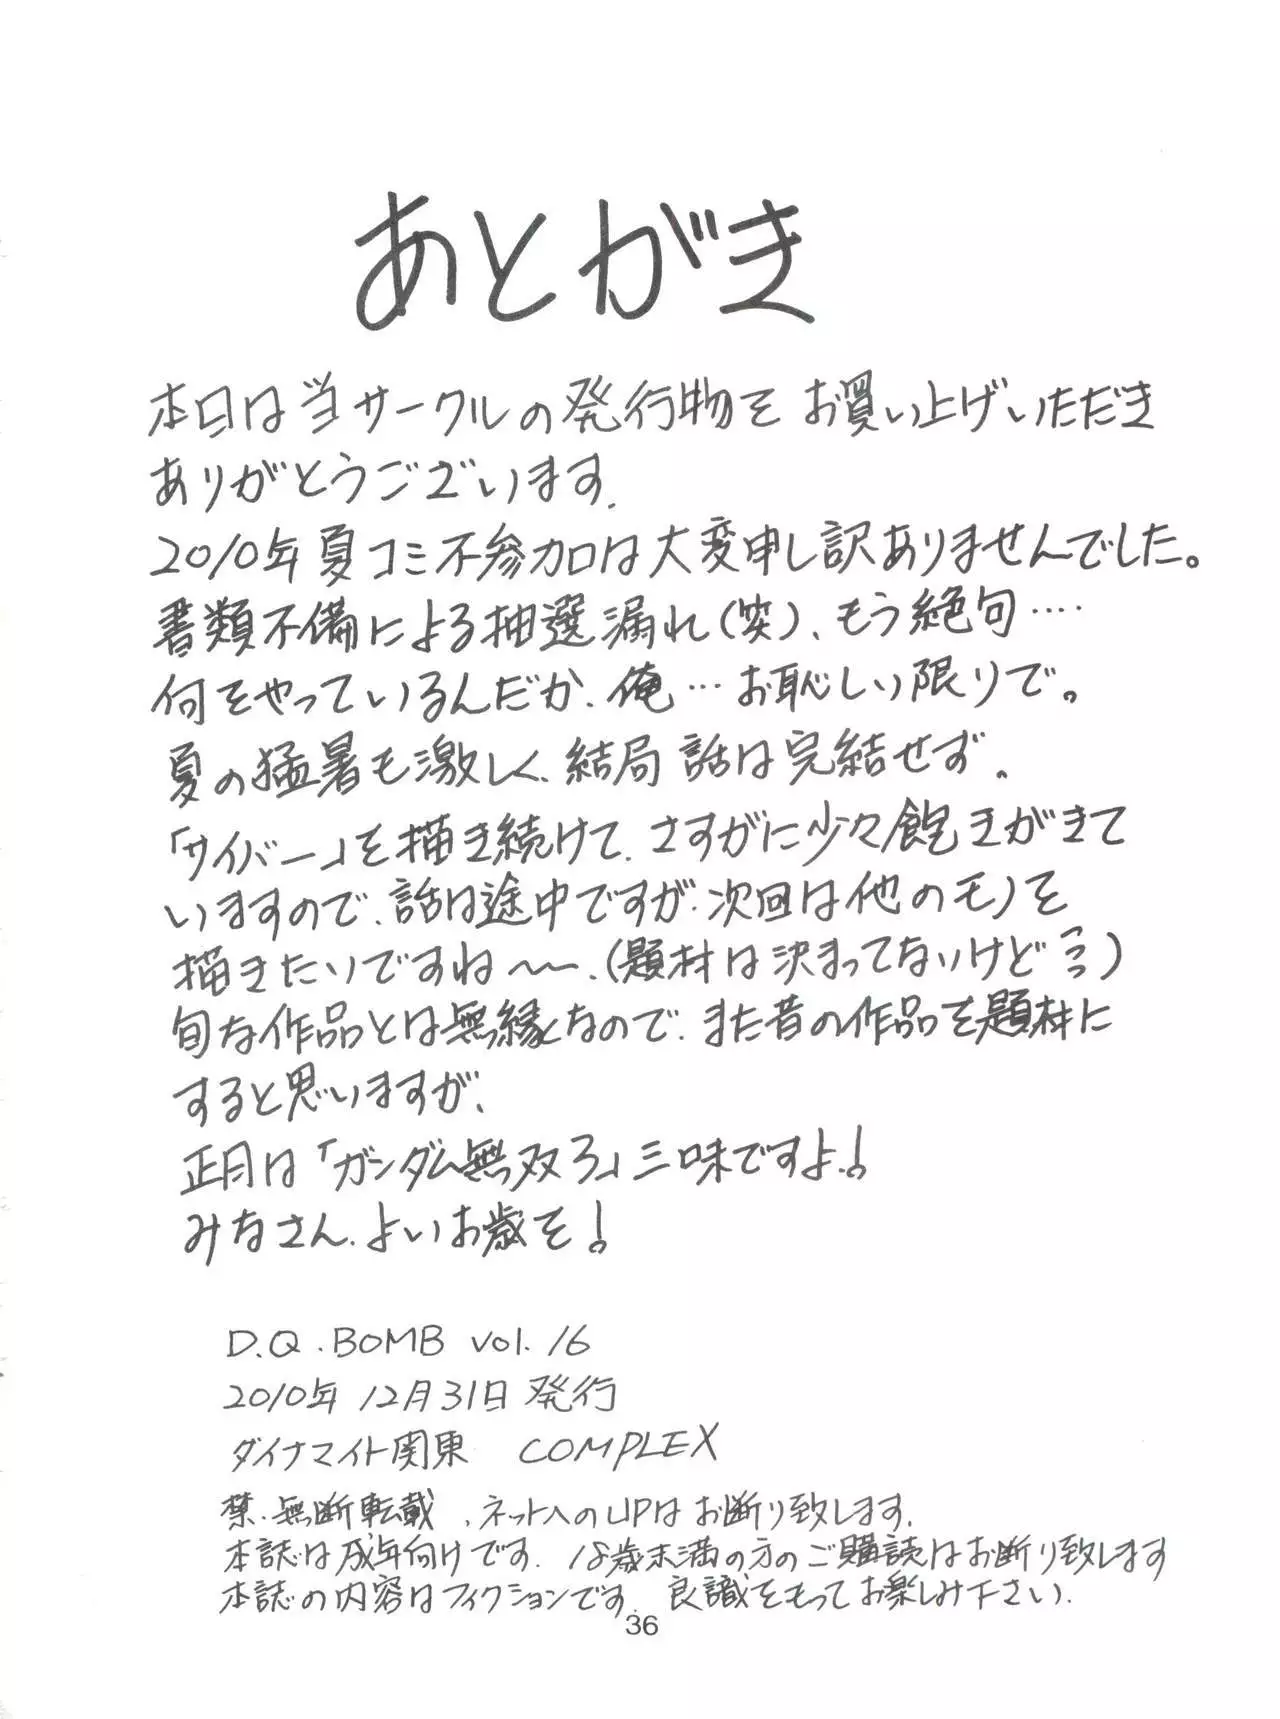 あとがき
本日は当サークルの発行物をお買い上げいただき
ありがとうございます.
2010年夏コミ不参加は大変申し訳ありませんでした。
書類不備による抽選漏れ(笑)、もう絶句‥‥
何をやっているんだか、俺…お恥しい限りで。
夏の猛暑も激しく、結局話は完結せず。
「サイバー」を描き続けて、さすがに少々飽きがきて
いますので、話は途中ですが、次回は他のモノを
描きたいですね～～、(題材は決まってないけど)
旬な作品とは無縁なので、また昔の作品を題材に
すると思いますが、
正月は「ガンダム無双3」三昧ですよ!
みなさん、よいお歳を!
D.Q.BOMB vol.16
2010年12月31日発行
ダイナマイト関東 COMPLEX
禁・無断転載、ネットへのUPはお断り致します.
本誌は成年向けです. 18歳未満の方のご購読はお断り致します
本誌の内容はフィクションです. 良識をもってお楽しみ下さい.
36